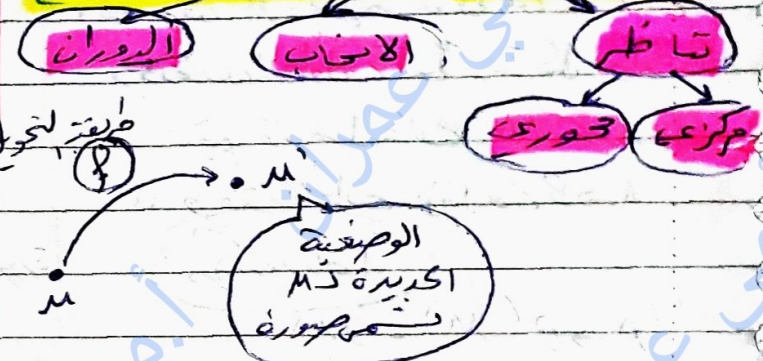 تناظر الانسحاب الدوران
مركزي محوري
طريقة التحويل
f
M'
M
الوضعية
الجديدة لـ M
تسمى صورة